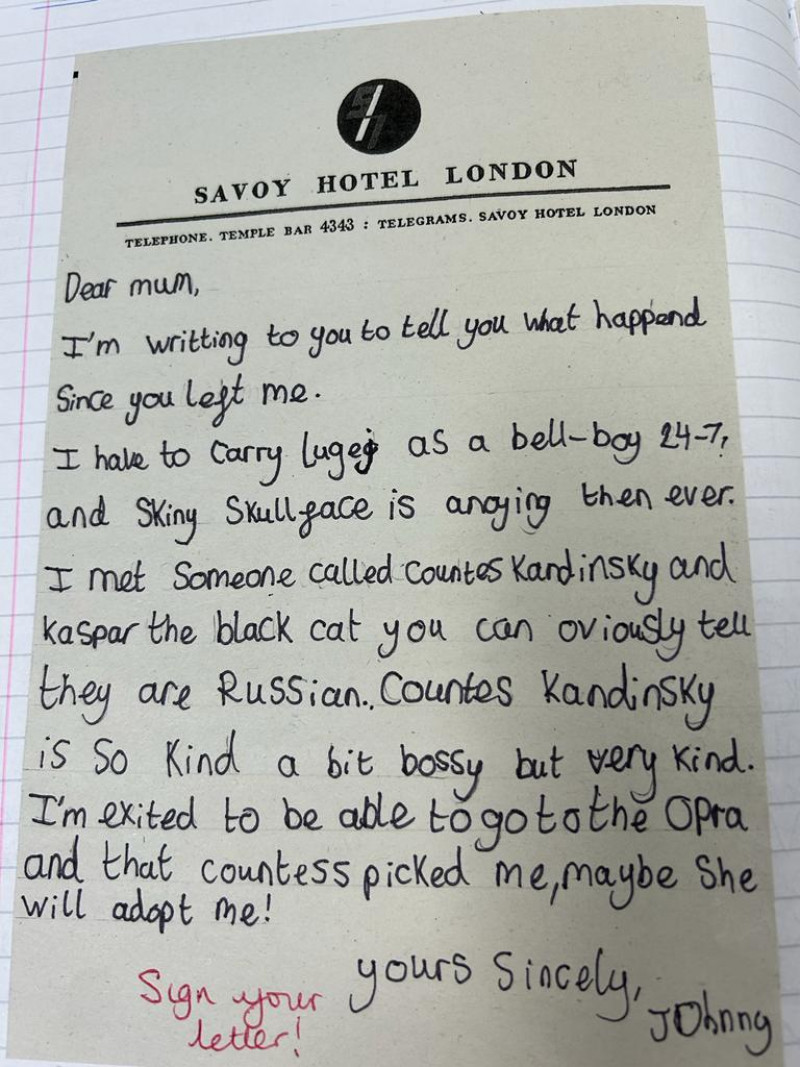 SAVOY HOTEL LONDON
TELEPHONE. TEMPLE BAR 4343 : TELEGRAMS. SAVOY HOTEL LONDON
Dear mum,
I'm writting to you to tell you what happend
Since you left me.
I have to carry lugej as a bell-boy 24-7,
and Skiny Skullface is anoying then ever.
I met Someone called Countes Kandinsky and
Kaspar the black cat you can oviously tell
they are Russian. Countes Kandinsky
is So Kind a bit bossy but very kind.
I'm exited to be able to go to the Opra
and that countess picked me, maybe She
will adopt me!
yours Sincely,
Sign your
letter!
JOhnny